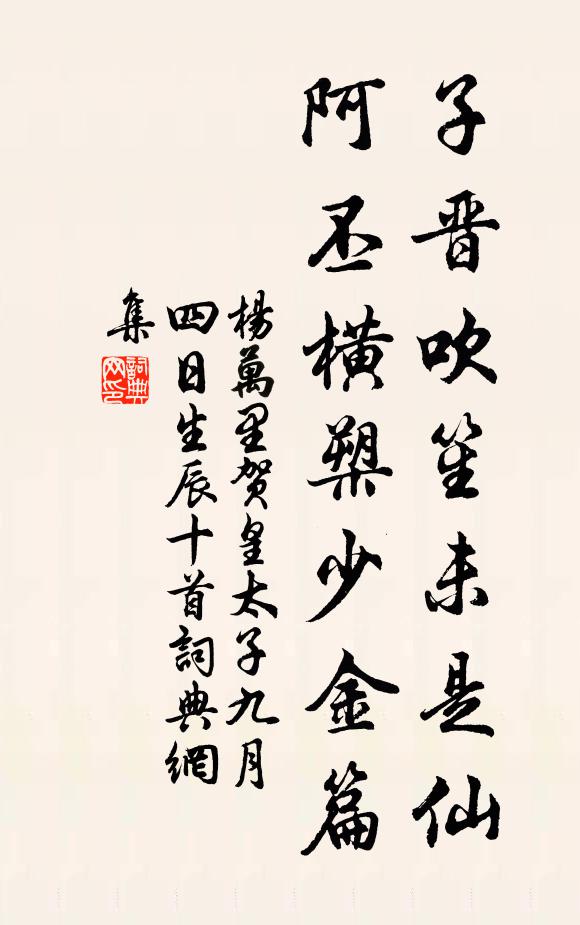 子晋吹笙未是仙
阿丕橫槊少金篇
楊萬里贺皇太子九月
四日生辰十首詞典網
集
詞典
网印